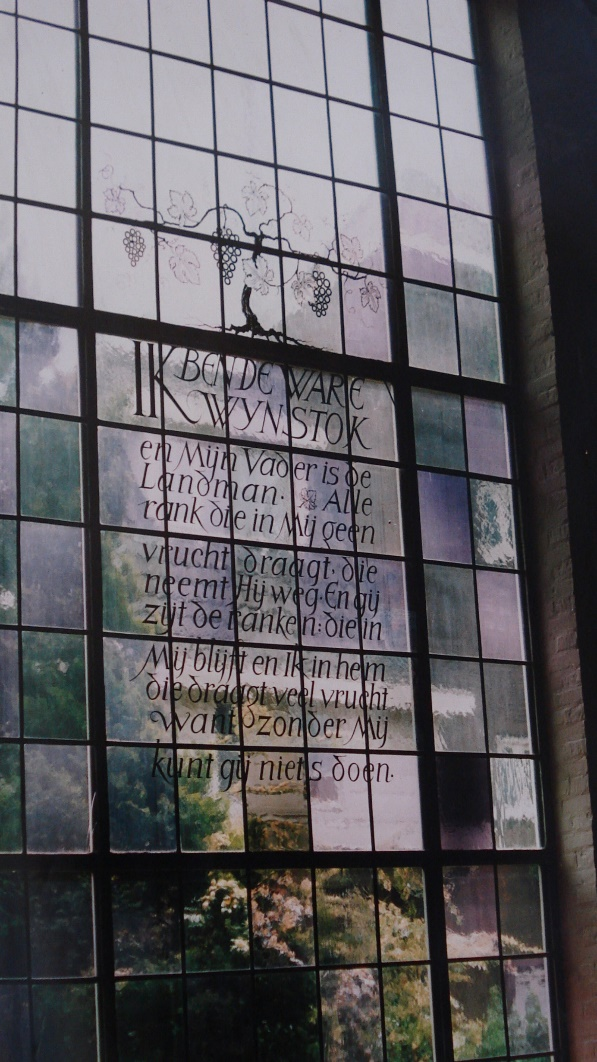 IK BEN DE WARE
WYNSTOK
en Mijn Vader is de
Landman. Alle
rank die in Mij geen
vrucht draagt, die
neemt Hij weg. En gij
zijt de ranken: die in
Mij blijft en Ik in hem
die draagt veel vrucht
want zonder Mij
kunt gij niets doen.